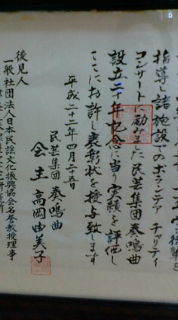 指導し諸施設でのボランティア チャリティ
コンサートに励みまた民芸集団奏鳴曲
設立二十年記念に当り実績を評価し
ここにお許し表彰状を授与致します
平成二十二年四月二十五日
民芸集団 奏鳴曲
会主 高岡由美子
後見人
一般社団法人日本民謡文化振興協会名誉教授理事